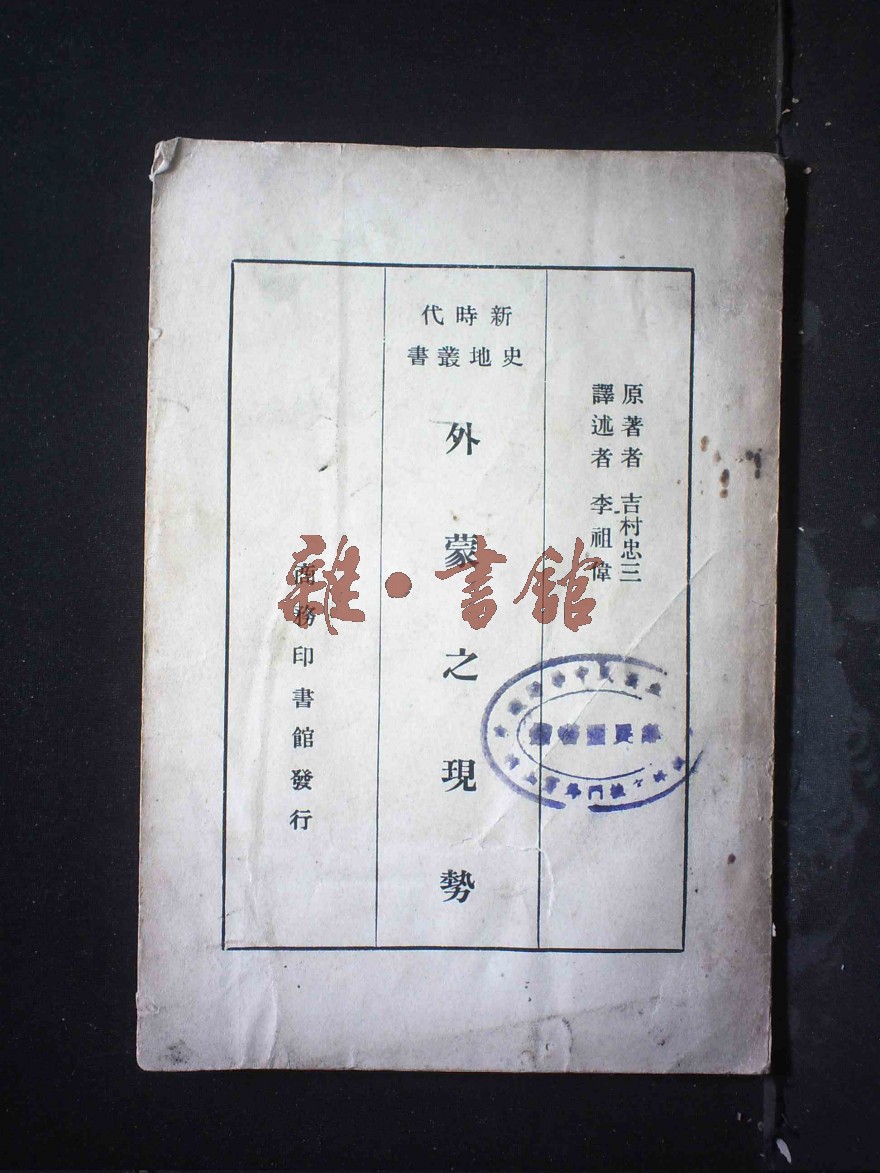 原著者 吉村忠三
譯述者 李祖偉
新時代
史地叢書
外蒙之現勢
商務印書館發行
雜·書館